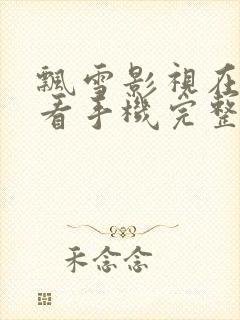 飄雪影視在
看手機完整
禾念念